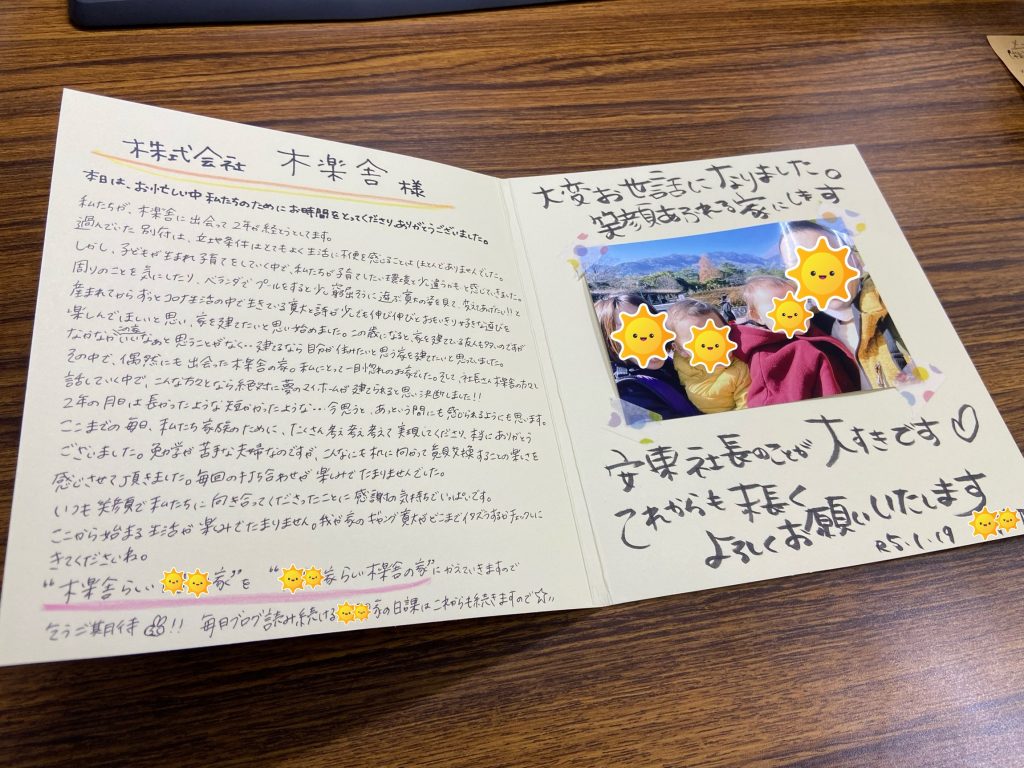 株式会社 木楽舎 様
本日は、お忙しい中 私たちのために お時間をとってくださりありがとうございました。
私たちが、木楽舎に出会って2年が経とうとしてます。
過んでいた別付は、立地条件はとてもよく生活に不便を感じることは ほとんどありませんでした。
しかし、子どもが生まれ子育てをしていく中で、私たちが子育てしたい環境と少し違うかもと感じていきました。
周りのことを気にしたり、ベランダでプールをすると少し窮屈そうに遊ぶ の姿を見て、変えてあげたい!!と
産まれてからずっとコロナ生活の中で生きている と詩が少しでも伸び伸びとおもいきり好きな遊びを
楽しんでほしいと思い、家を建てたいと思い始めました。この歳になると家を建てる友人も多いのですが
なかなかこの家いいなぁと思うことがなく…建てるなら自分が住みたいと思う家を建てたいと思っていました。
その中で、偶然にも出会った木楽舎の家。私にとって一目惚れのお家でした。そして、社長さん木楽舎の方々と
話していく中で、こんな方々となら絶対に夢のマイホームが建てられると思い決断しました!!
2年の月日は長かったような短かかったような…今思うと、あっという間にも感じられるようにも思います。
ここまでの毎日、私たち家族のために、たくさん考え考え考えて実現してくださり、本当にありがとう
ございました。勉学が苦手な夫婦なのですが、こんなにも机に向かって意見交換することの楽しさを
感じさせて頂きました。毎回の打ち合わせが楽しみでたまりませんでした。
いつも笑顔で私たちに向き合ってくださったことに感謝の気持ちでいっぱいです。
ここから始まる生活が楽しみでたまりません。我が家のギャング がどこまでイタズラするかチェックしに
きてくださいね。
“木楽舎らしい 家”を “ 家らしい木楽舎の家”にかえていきますので
乞うご期待!! 毎日ブログ読み続ける 家の日課はこれからも続きますので☆
大変お世話になりました。
笑顔あふれる家にします
安東社長のことが 大すきです♡
これからも末長く
よろしくお願いいたします
R5.1.19